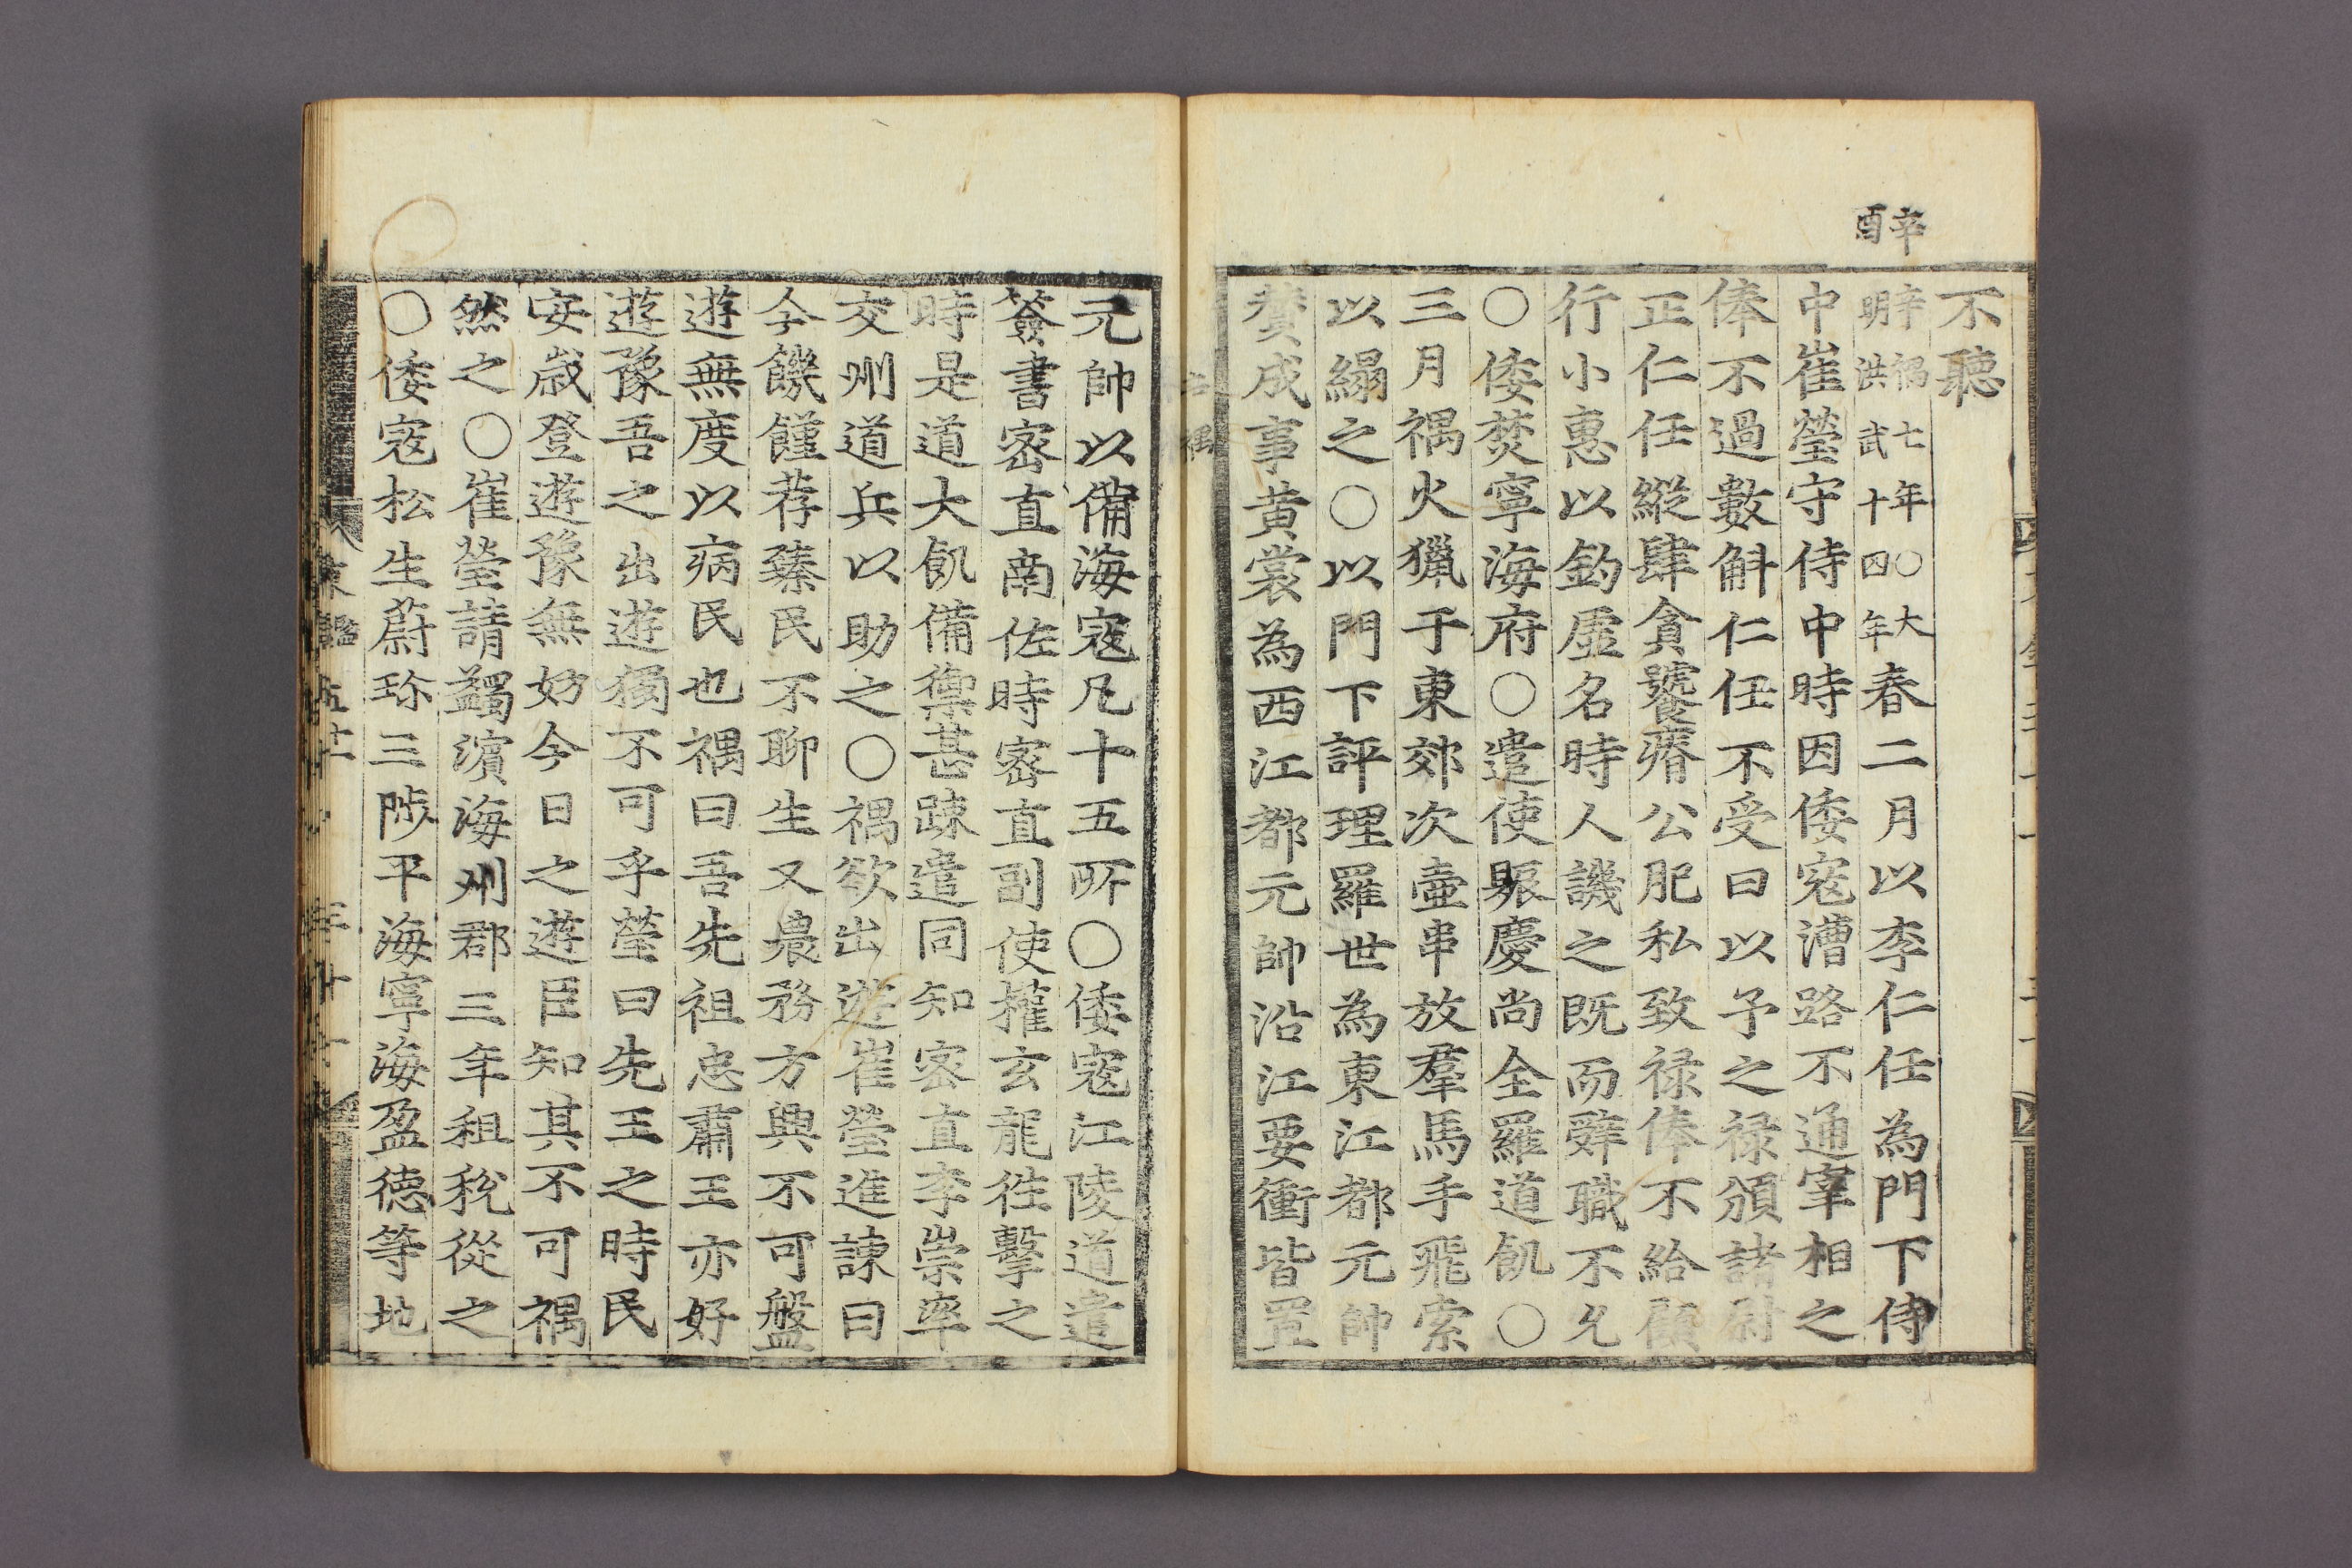 辛酉
不聽
辛禑七年○大
明洪武十四年
春二月以李仁任為門下侍
中崔瑩守侍中時因倭寇漕路不通宰相之
俸不過數斛仁任不受曰以予之禄頒諸尉
正仁任縱肆貪饕瘠公肥私致禄俸不給顧
行小惠以釣虛名時人譏之既而辭職不允
○倭焚寧海府○遣使賑慶尚全羅道飢○
三月禑火獵于東郊次壷串放羣馬手飛索
以縎之○以門下評理羅世為東江都元帥
贊成事黄裳為西江都元帥沿江要衝皆置
辛禑
元帥以備海寇凡十五所○倭寇江陵道遣
簽書宻直南佐時宻直副使權玄龍徃擊之
時是道大飢備禦甚踈遣同知宻直李崇率
交州道兵以助之○禑欲出遊崔瑩進諫曰
今饑饉荐臻民不聊生又農務方興不可盤
遊無度以病民也禑曰吾先祖忠肅王亦好
遊豫吾之出遊獨不可乎瑩曰先王之時民
安歲登遊豫無妨今日之遊臣知其不可禑
然之○崔瑩請蠲濱海州郡三年租稅從之
○倭寇松生蔚珍三陟平海寧海盈德等地